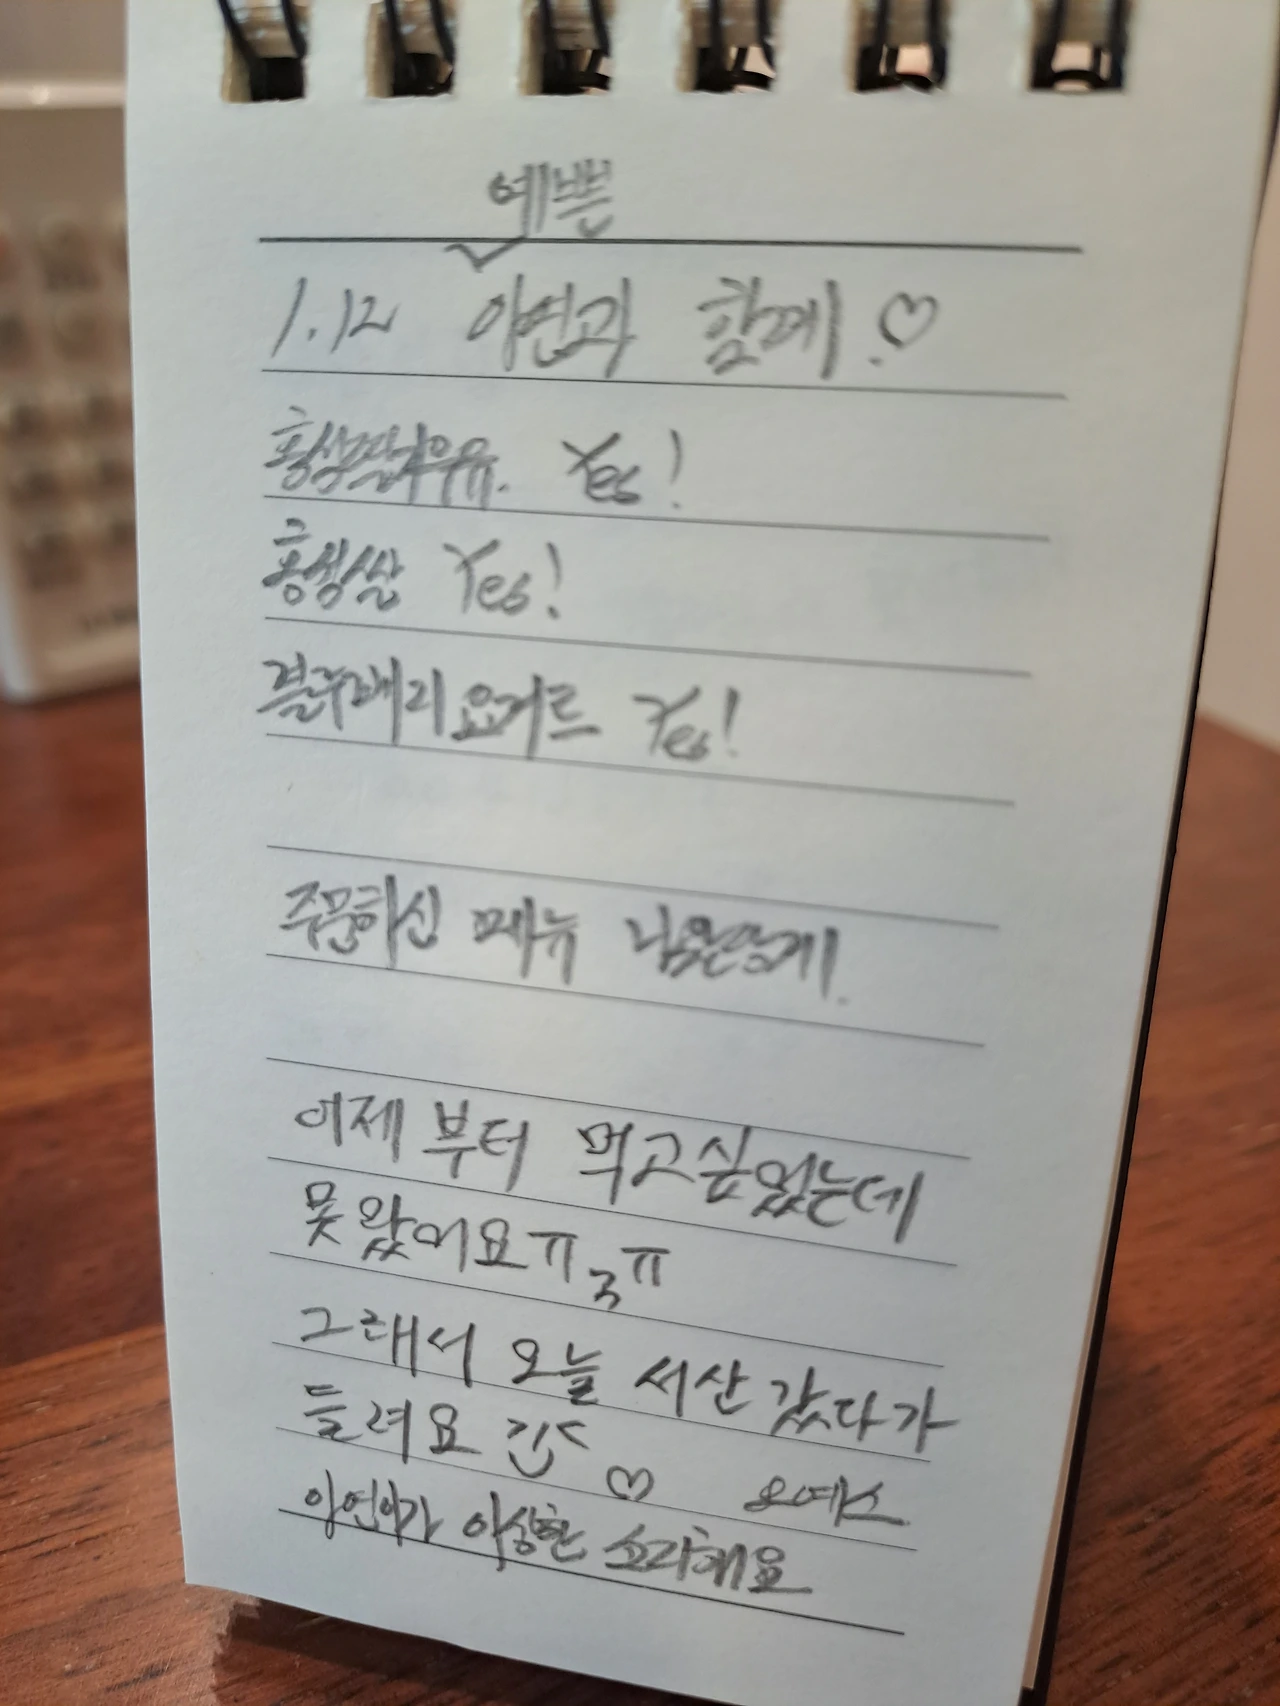 예쁜
1.12 아연과 함께.♡
홍성딸기우유. Yes!
홍성쌀 Yes!
블루베리요거트 Yes!
주문하신 메뉴
어제 부터 먹고싶었는데
못왔어요ㅠ3ㅠ
그래서 오늘 서산 갔다가
들려요 >‿<
♡ 요예스
아연아가 이상한 소리해요